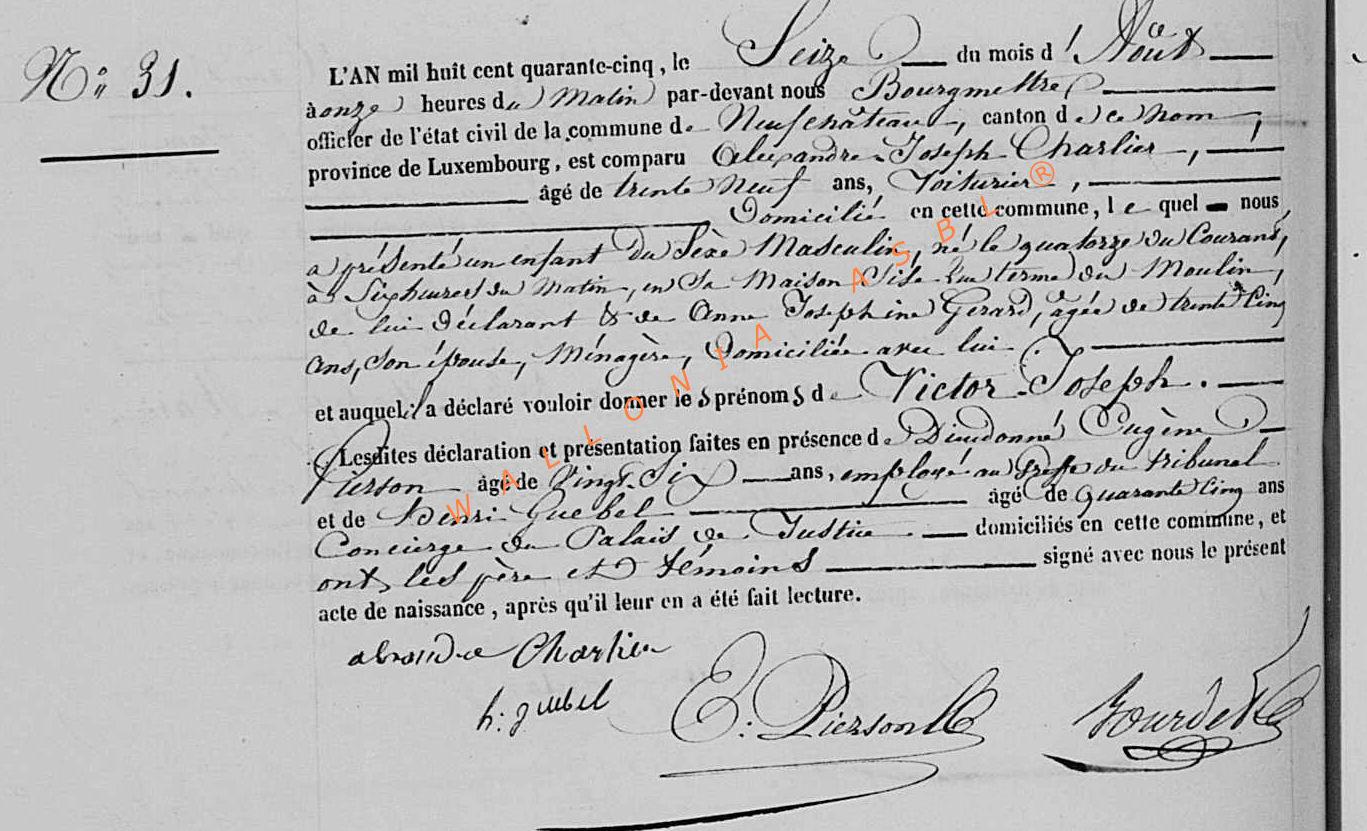 N° 31.
L'AN mil huit cent quarante-cinq, le Seize du mois d'Août
à onze heures du Matin par-devant nous Bourgmettre
officier de l'état civil de la commune de Neufchâteau, canton de ce nom,
province de Luxembourg, est comparu Alexandre Joseph Charlier,
âgé de trente Neuf ans, Voiturier,
Domicilié en cette commune, lequel nous
a présenté un enfant du Sèxe Masculin, né le quatorze du Courant,
à Six heures du Matin, en Sa Maison Sise terme du Moulin,
de lui déclarant & de Anne Josephine Gerard, agée de trente Cinq
ans, Son épouse, Ménagère, Domiciliée avec lui.
et auquel il a déclaré vouloir donner les prénoms de Victor Joseph.
Lesdites déclaration et présentation faites en présence de Dieudonné Eugène
Pierson âgé de Vingt Six ans, employé au Greffe du tribunal
et de Henri Guebel âgé de quarante Cinq ans
Concierge du Palais de Justice domiciliés en cette commune, et
ont les père et témoins signé avec nous le présent
acte de naissance, après qu'il leur en a été fait lecture.
Charlier
h: guebel E. Pierson Bourdet
WALLONIA ASBL ®